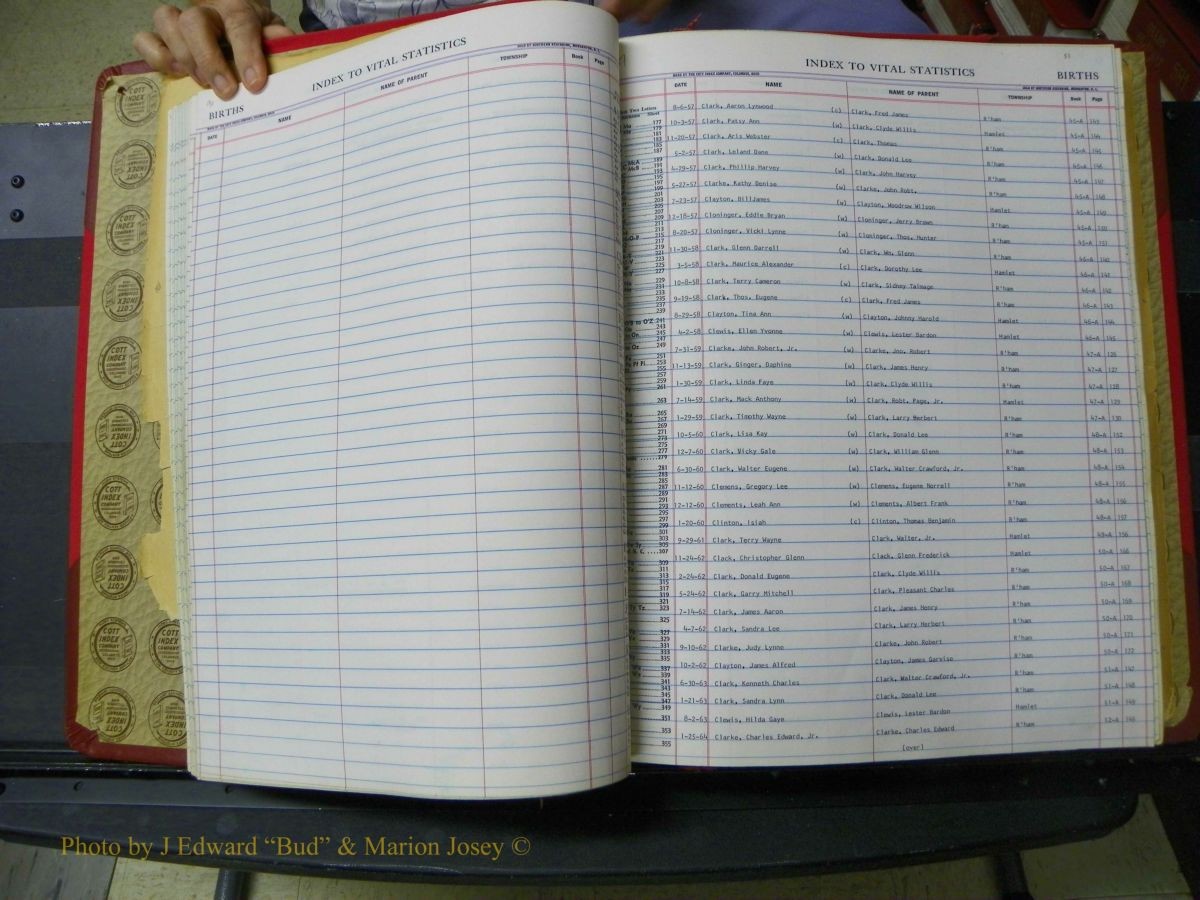 INDEX TO VITAL STATISTICS
BIRTHS
DATE NAME NAME OF PARENT TOWNSHIP Book Page
COTT INDEX COMPANY
INDEX TO VITAL STATISTICS BIRTHS
DATE NAME NAME OF PARENT TOWNSHIP Book Page
8-6-57 Clark, Aaron Lynwood (c) Clark, Fred James R'ham 45-A 143
10-3-57 Clark, Patsy Ann (w) Clark, Clyde Willis Hamlet 45-A 144
11-20-57 Clark, Aris Webster (c) Clark, Thomas R'ham 45-A 145
5-2-57 Clark, Leland Dane (w) Clark, Donald Lee R'ham 45-A 146
4-29-57 Clark, Phillip Harvey (w) Clark, John Harvey R'ham 45-A 147
5-27-57 Clarke, Kathy Denise (w) Clarke, John Robt. R'ham 45-A 148
7-23-57 Clayton, BillJames (w) Clayton, Woodrow Wilson Hamlet 45-A 149
12-18-57 Cloninger, Eddie Bryan (w) Cloninger, Jerry Brown R'ham 45-A 150
8-20-57 Cloninger, Vicki Lynne (w) Cloninger, Thos. Hunter R'ham 45-A 151
11-30-58 Clark, Glenn Darrell (w) Clark, Wm. Glenn R'ham 46-A 140
3-5-58 Clark, Maurice Alexander (c) Clark, Dorothy Lee Hamlet 46-A 141
10-8-58 Clark, Terry Cameron (w) Clark, Sidney Talmage R'ham 46-A 142
9-19-58 Clark, Thos. Eugene (c) Clark, Fred James R'ham 46-A 143
8-29-58 Clayton, Tina Ann (w) Clayton, Johnny Harold Hamlet 46-A 144
4-2-58 Clewis, Ellen Yvonne (w) Clewis, Lester Bardon Hamlet 46-A 145
7-31-59 Clarke, John Robert, Jr. (w) Clarke, Jno. Robert R'ham 47-A 126
11-13-59 Clark, Ginger, Daphine (w) Clark, James Henry R'ham 47-A 127
1-30-59 Clark, Linda Faye (w) Clark, Clyde Willis R'ham 47-A 128
7-14-59 Clark, Mack Anthony (w) Clark, Robt. Page, Jr. Hamlet 47-A 129
1-29-59 Clark, Timothy Wayne (w) Clark, Larry Herbert R'ham 47-A 130
10-5-60 Clark, Lisa Kay (w) Clark, Donald Lee R'ham 48-A 152
12-7-60 Clark, Vicky Gale (w) Clark, William Glenn R'ham 48-A 153
6-30-60 Clark, Walter Eugene (w) Clark, Walter Crawford, Jr. R'ham 48-A 154
11-12-60 Clemens, Gregory Lee (w) Clemens, Eugene Norrell R'ham 48-A 155
12-12-60 Clements, Leah Ann (w) Clements, Albert Frank R'ham 48-A 156
1-20-60 Clinton, Isiah (c) Clinton, Thomas Benjamin R'ham 48-A 157
9-29-61 Clark, Terry Wayne Clark, Walter, Jr. Hamlet 49-A 156
11-24-62 Clack, Christopher Glenn Clack, Glenn Frederick Hamlet 50-A 166
2-24-62 Clark, Donald Eugene Clark, Clyde Willis R'ham 50-A 167
5-24-62 Clark, Garry Mitchell Clark, Pleasant Charles R'ham 50-A 168
7-14-62 Clark, James Aaron Clark, James Henry R'ham 50-A 169
4-7-62 Clark, Sandra Lee Clark, Larry Herbert R'ham 50-A 170
9-10-62 Clarke, Judy Lynne Clarke, John Robert R'ham 50-A 171
10-2-62 Clayton, James Alfred Clayton, James Garvise R'ham 50-A 172
6-30-63 Clark, Kenneth Charles Clark, Walter Crawford, Jr. R'ham 51-A 147
1-21-63 Clark, Sandra Lynn Clark, Donald Lee R'ham 51-A 148
8-2-63 Clewis, Hilda Gaye Clewis, Lester Bardon Hamlet 51-A 149
1-25-64 Clarke, Charles Edward, Jr. Clarke, Charles Edward R'ham 52-A
(over)
Photo by J Edward “Bud” & Marion Josey ©